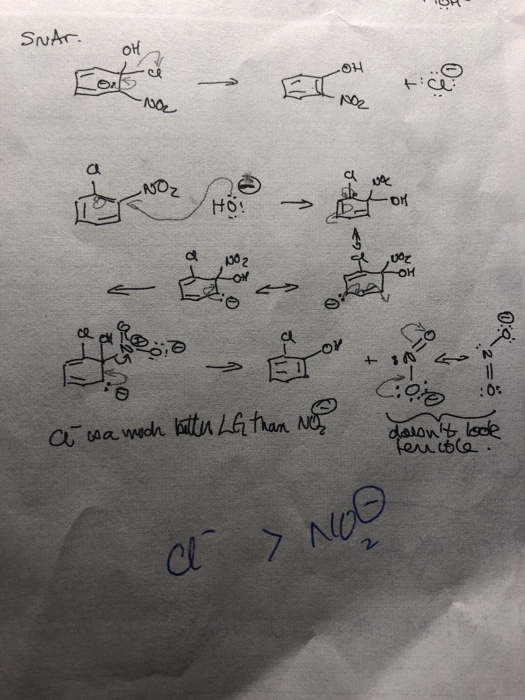 SNAr.
OH
Cl
NO2
OH
NO2
+ :Cl: ⊖
Cl
NO2
HO: ⊖
Cl
OH
Cl NO2
OH
⊖
Cl NO2
OH
⊖
Cl OH
N
O
⊖
Cl
OH
+
N
O
O
⊖
N
O
O
⊖
Cl⁻ is a much better LG than NO2⊖
doesn't look terrible.
Cl⁻ > NO2⊖